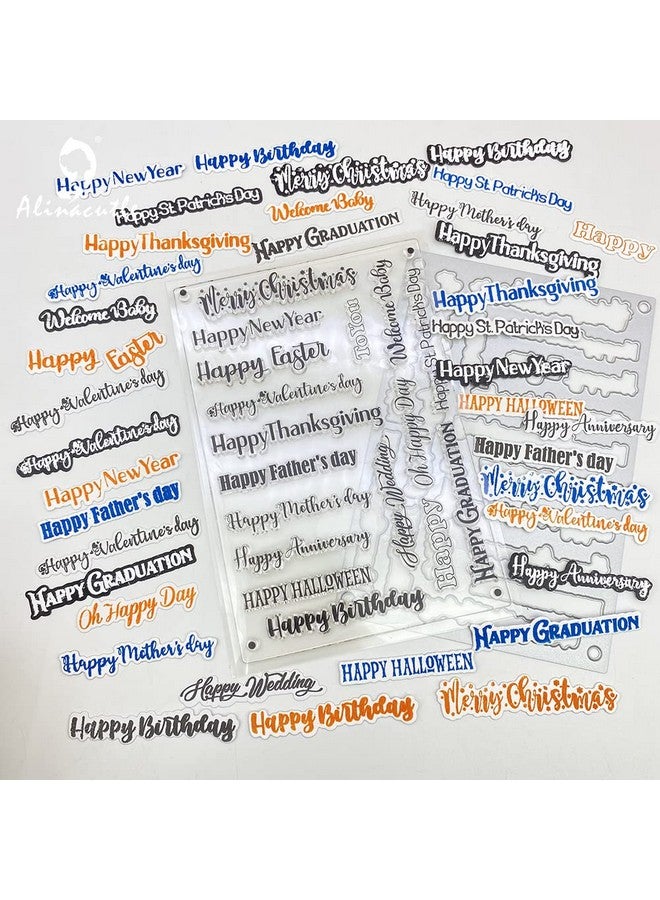 Happy New Year
Happy Birthday
Merry Christmas
Happy Birthday
Alinacutle
Happy St. Patrick's Day
Welcome Baby
Happy St. Patrick's Day
Happy Mother's day
Happy Thanksgiving
Happy Graduation
Happy Thanksgiving
Happy
Happy Valentine's day
Welcome Baby
Happy Easter
Happy Valentine's day
Happy Valentine's day
Happy New Year
Happy Father's day
Happy Valentine's day
Happy Graduation
Oh Happy Day
Happy Mother's day
Merry Christmas
Happy New Year
Happy Easter
Happy Valentine's day
Happy Thanksgiving
Happy Father's day
Happy Mother's day
Happy Anniversary
HAPPY HALLOWEEN
Happy Birthday
To You
Welcome Baby
Happy St. Patrick's Day
Happy Wedding
Oh Happy Day
Happy
Happy Graduation
Happy Thanksgiving
Happy St. Patrick's Day
Happy New Year
HAPPY HALLOWEEN
Happy Anniversary
Happy Father's day
Merry Christmas
Happy Valentine's day
Happy Anniversary
Happy Graduation
HAPPY HALLOWEEN
Happy Wedding
Merry Christmas
Happy Birthday
Happy Birthday